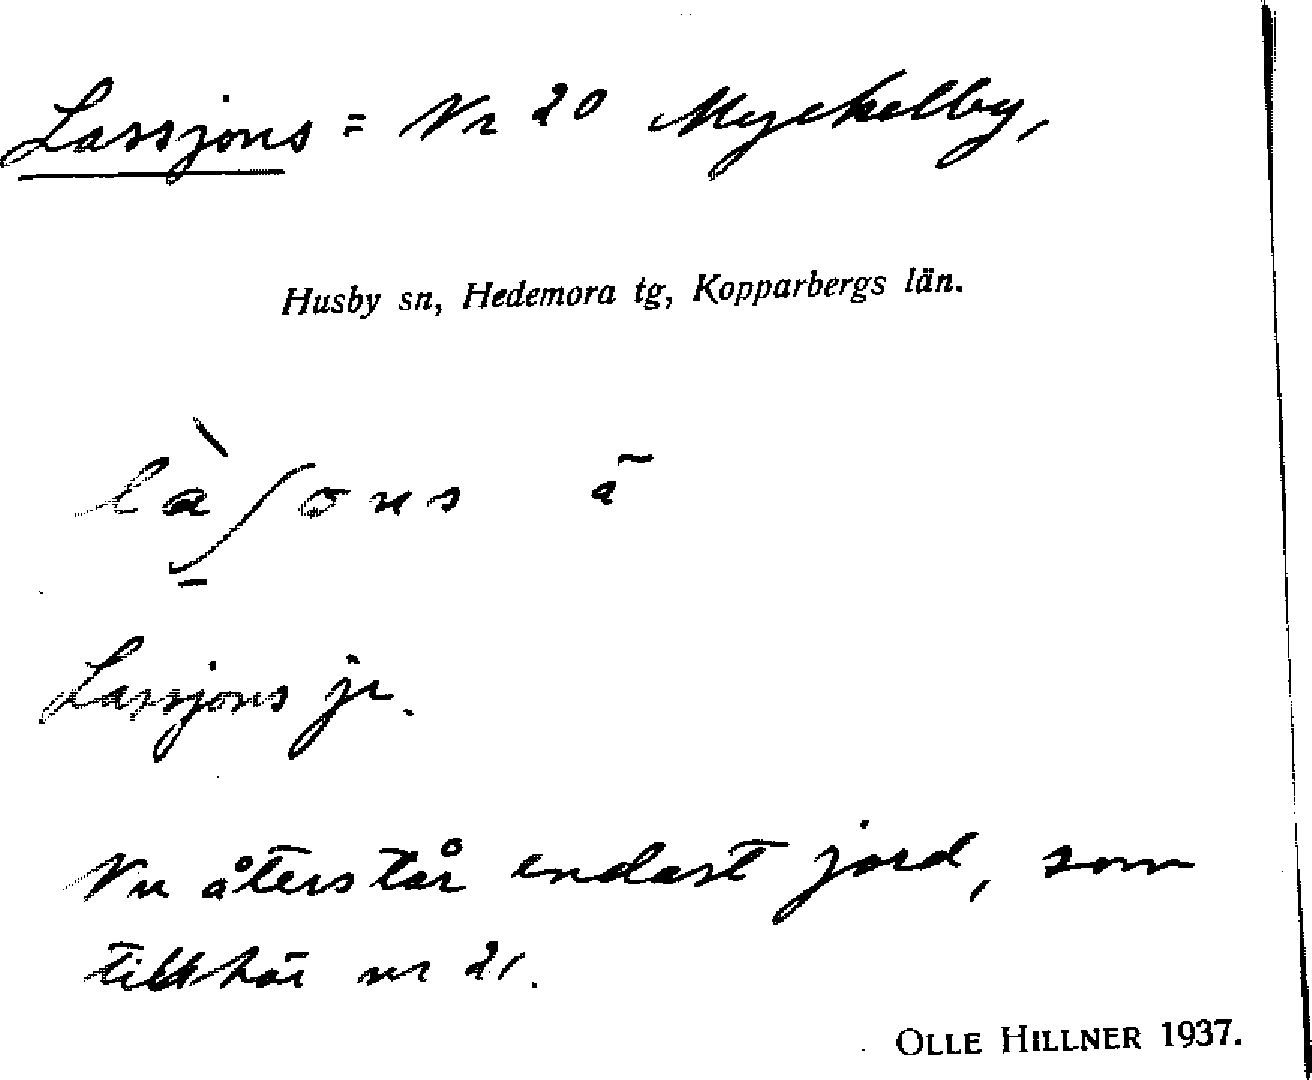 Lassjons = Nr 20 Myckelby,
Husby sn, Hedemora tg, Kopparbergs län.
Lassjons jr.
Nu återstår endast jord, som
tillhör nr 21.
OLLE HILLNER 1937.